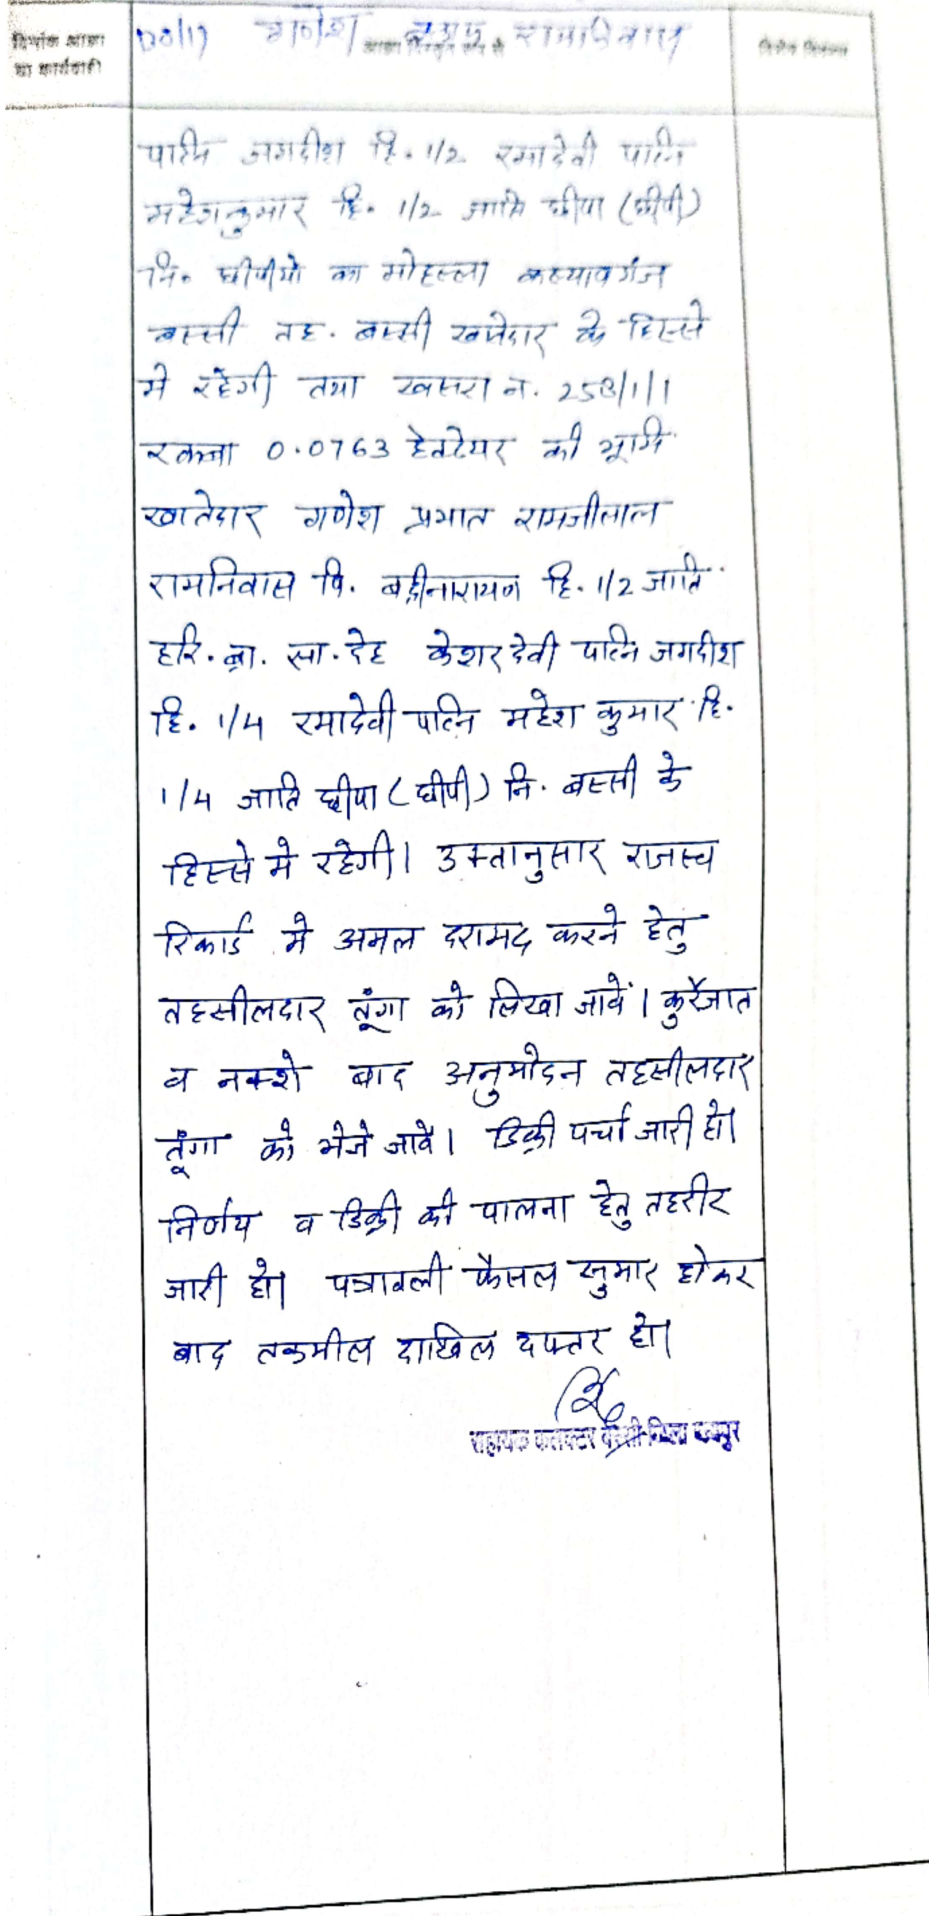 दिनांक आज्ञा
या कार्यवाही
130/17 गणेश बनाम रामनिवास
आज्ञा विस्तृत रूप से
विशेष विवरण
पात्नि जगदीश हि. 1/2 रमादेवी पात्नि
महेशकुमार हि. 1/2 जाति छीपा (छीपी)
नि. छीपीयो का मोहल्ला कल्याणगंज
बस्सी तह. बस्सी खातेदार के हिस्से
मे रहेगी तथा खसरा न. 258/1/1
रकबा 0.0763 हेक्टेयर की भूमि
खातेदार गणेश प्रभात रामजीलाल
रामनिवास पि. बद्रीनारायण हि. 1/2 जाति
हरि. ब्रा. सा. देह केशरदेवी पात्नि जगदीश
हि. 1/4 रमादेवी पात्नि महेश कुमार हि.
1/4 जाति छीपा (छीपी) नि. बस्सी के
हिस्से मे रहेगी। उक्तानुसार राजस्व
रिकार्ड मे अमल दरामद करने हेतु
तहसीलदार तूंगा को लिखा जावें। कुर्रेजात
व नक्शे बाद अनुमोदन तहसीलदार
तूंगा को भेजे जावें। डिक्री पर्चा जारी हो।
निर्णय व डिक्री की पालना हेतु तहरीर
जारी हो। पत्रावली फैसल सुमार होकर
बाद तकमील दाखिल दफ्तर हो।
सहायक कलक्टर बस्सी जिला जयपुर